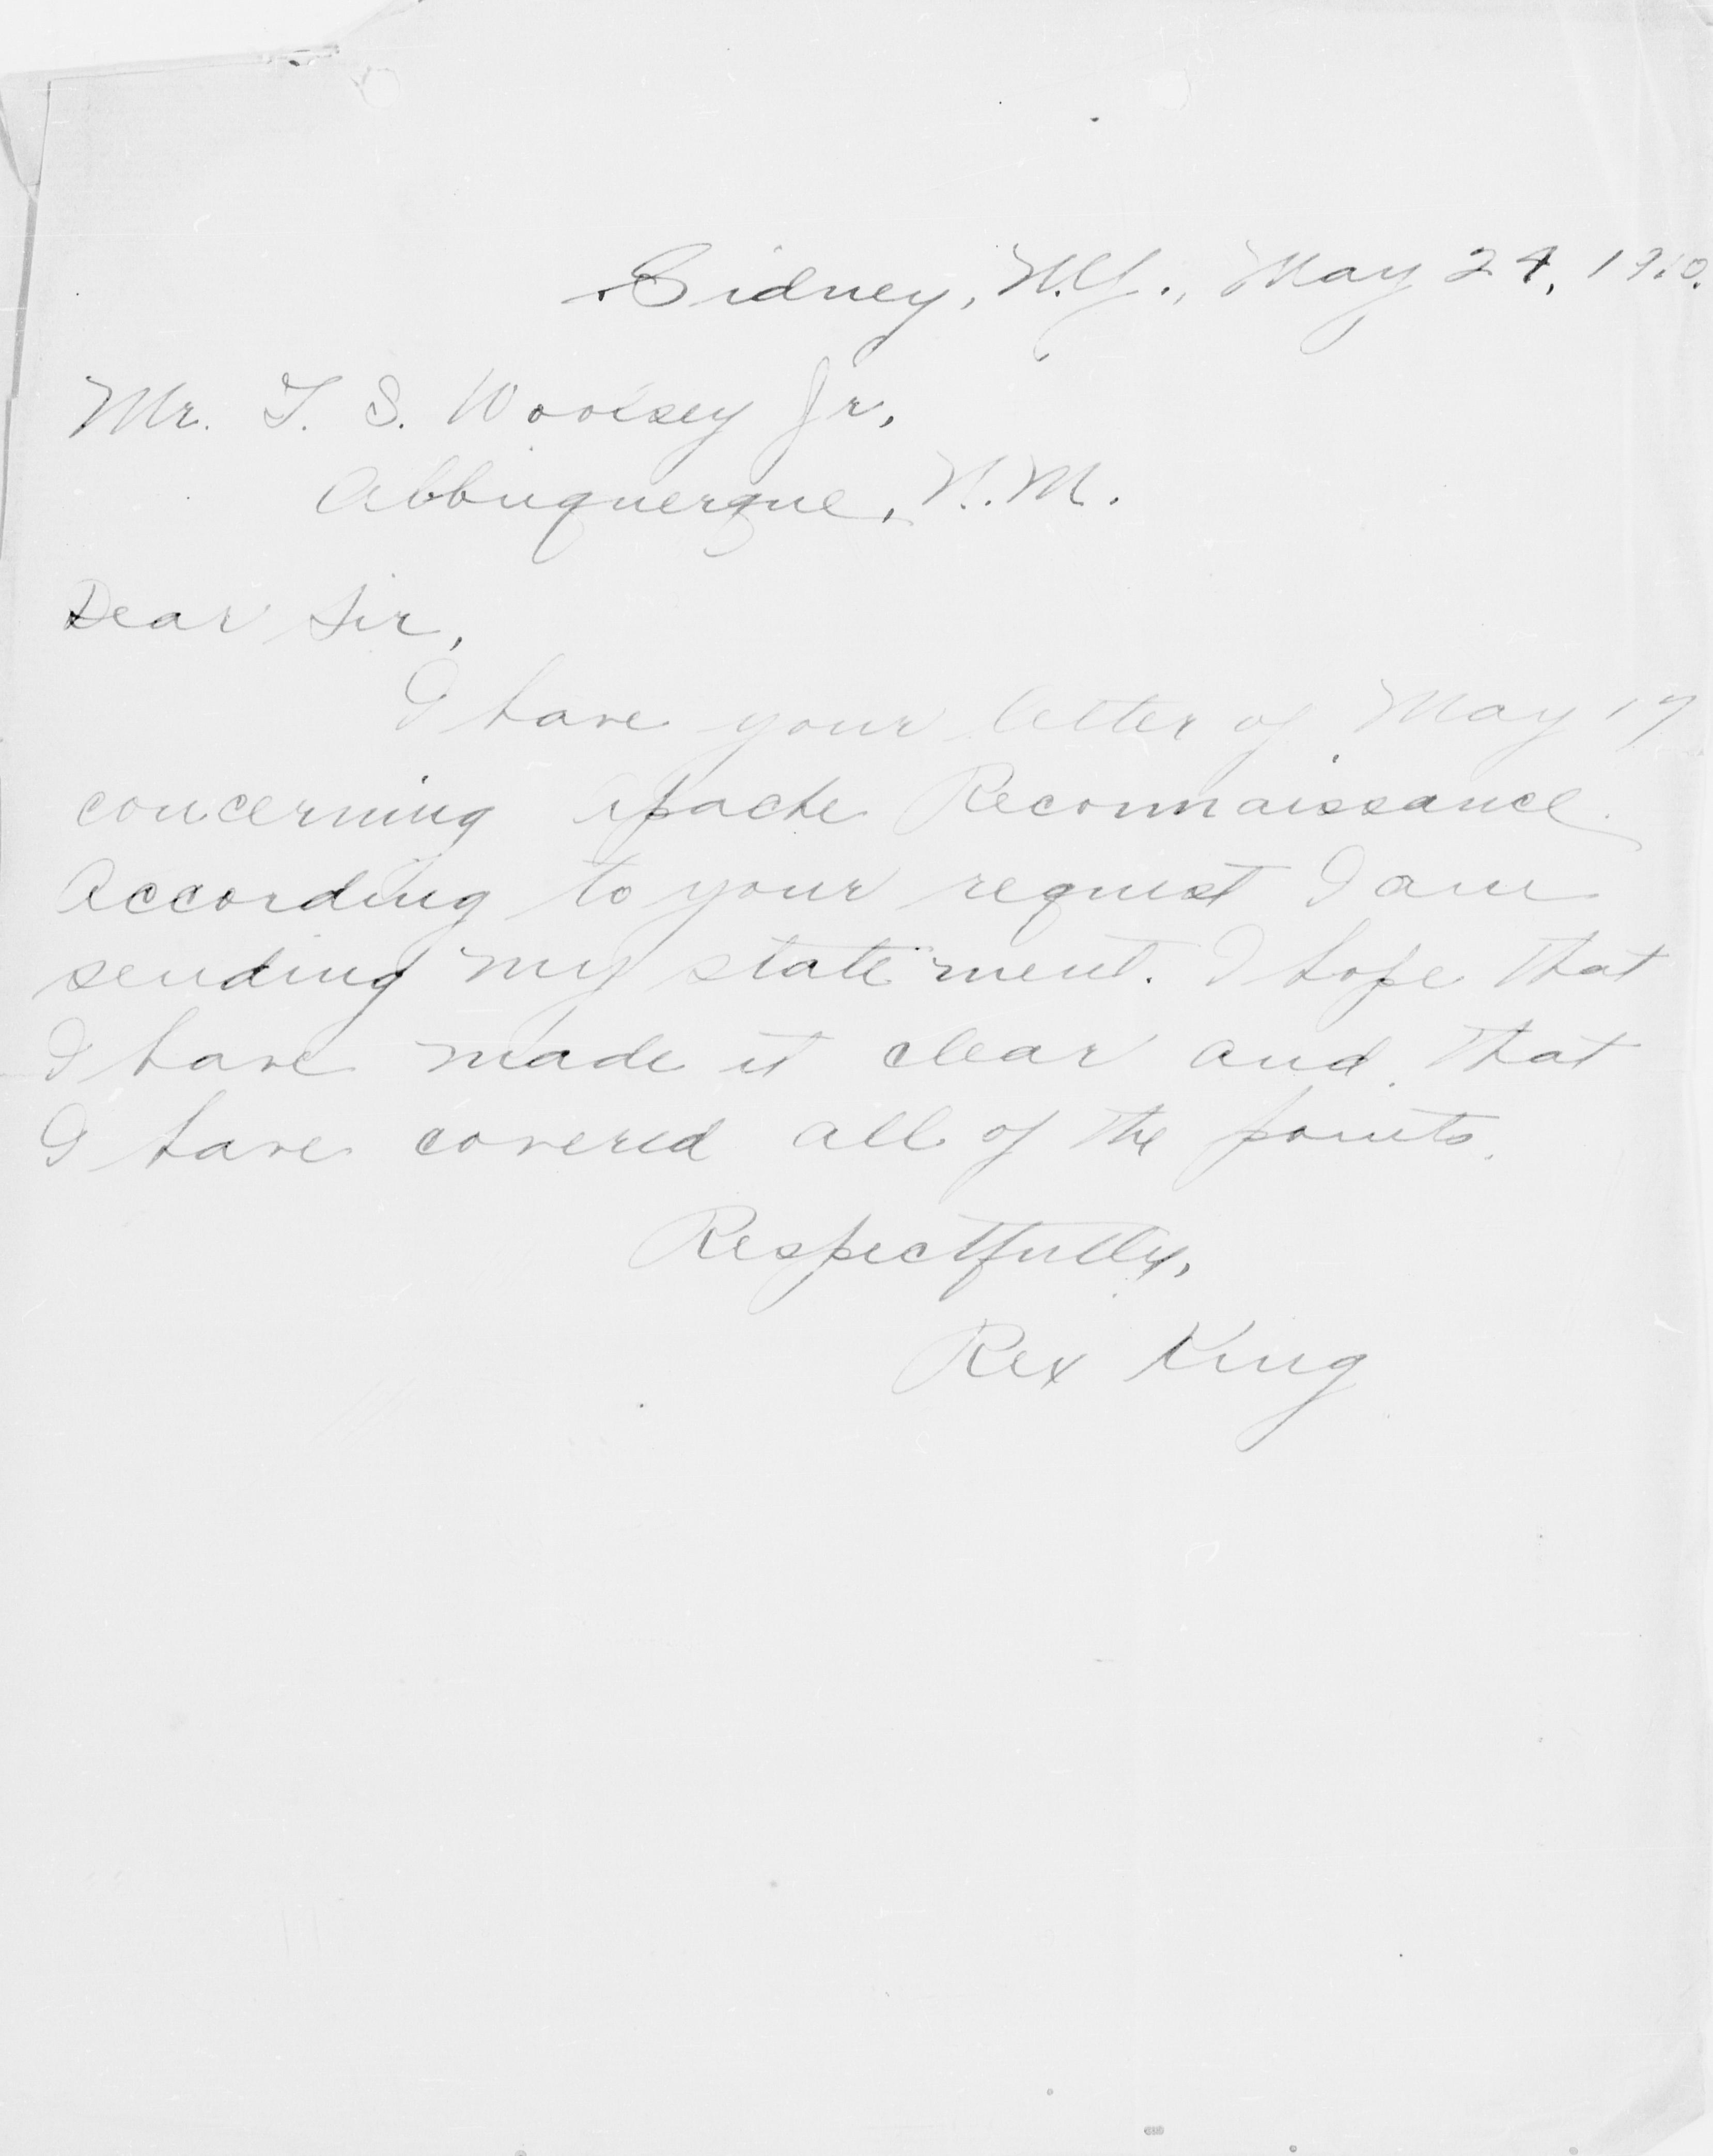 Sidney, N.Y., May 24, 1910.
Mr. T. S. Woolsey Jr,
Albuquerque, N.M.
Dear Sir,
I have your letter of May 17
concerning Apache Reconnaissance.
According to your request I am
sending my statement. I hope that
I have made it clear and that
I have covered all of the points.
Respectfully,
Rex King